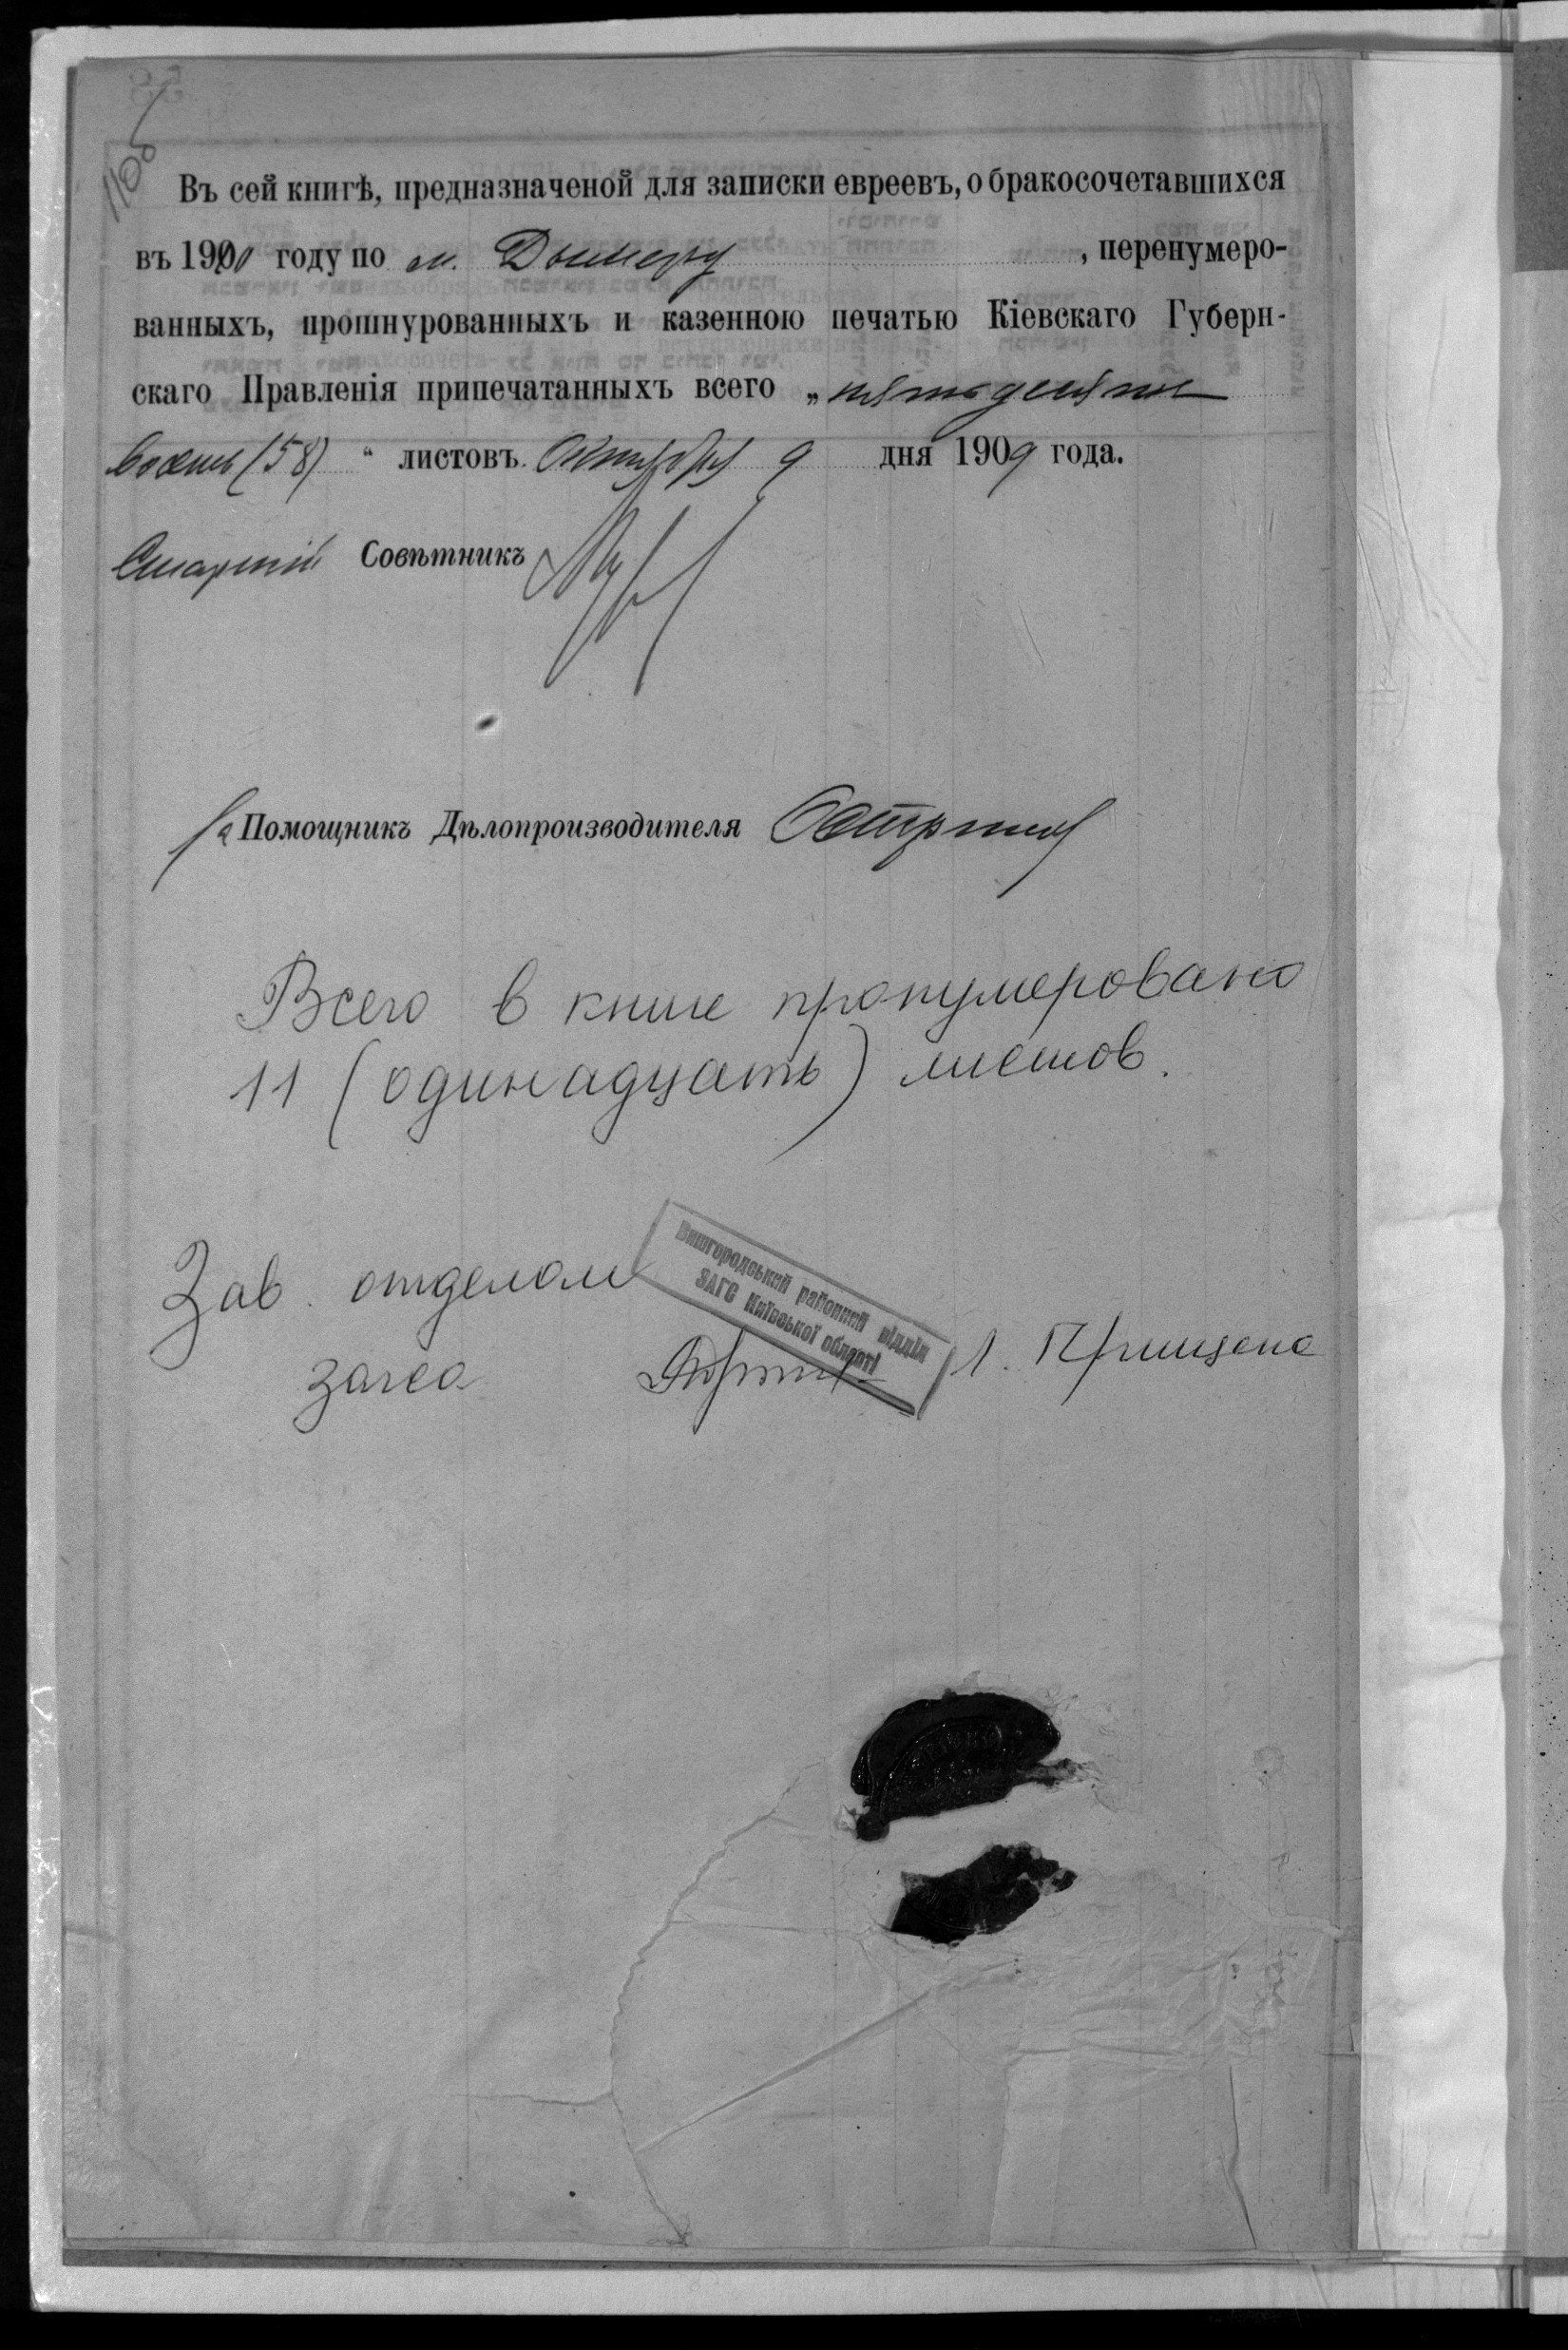 11об
Въ сей книгѣ, предназначеной для записки евреевъ, о бракосочетавшихся
въ 1910 году по м. Дымеру, перенумеро-
ванныхъ, прошнурованныхъ и казенною печатью Кіевскаго Губерн-
скаго Правленія припечатанныхъ всего „пятьдесятъ
восемь (58)“ листовъ. Октября 9 дня 1909 года.
Старшій Совѣтникъ
Помощникъ Дѣлопроизводителя
Всего в книге пронумеровано
11 (одинадцать) листов.
Вишгородський районний відділ
ЗАГС Київської області
Зав. отделом
загса Л. Прищепа